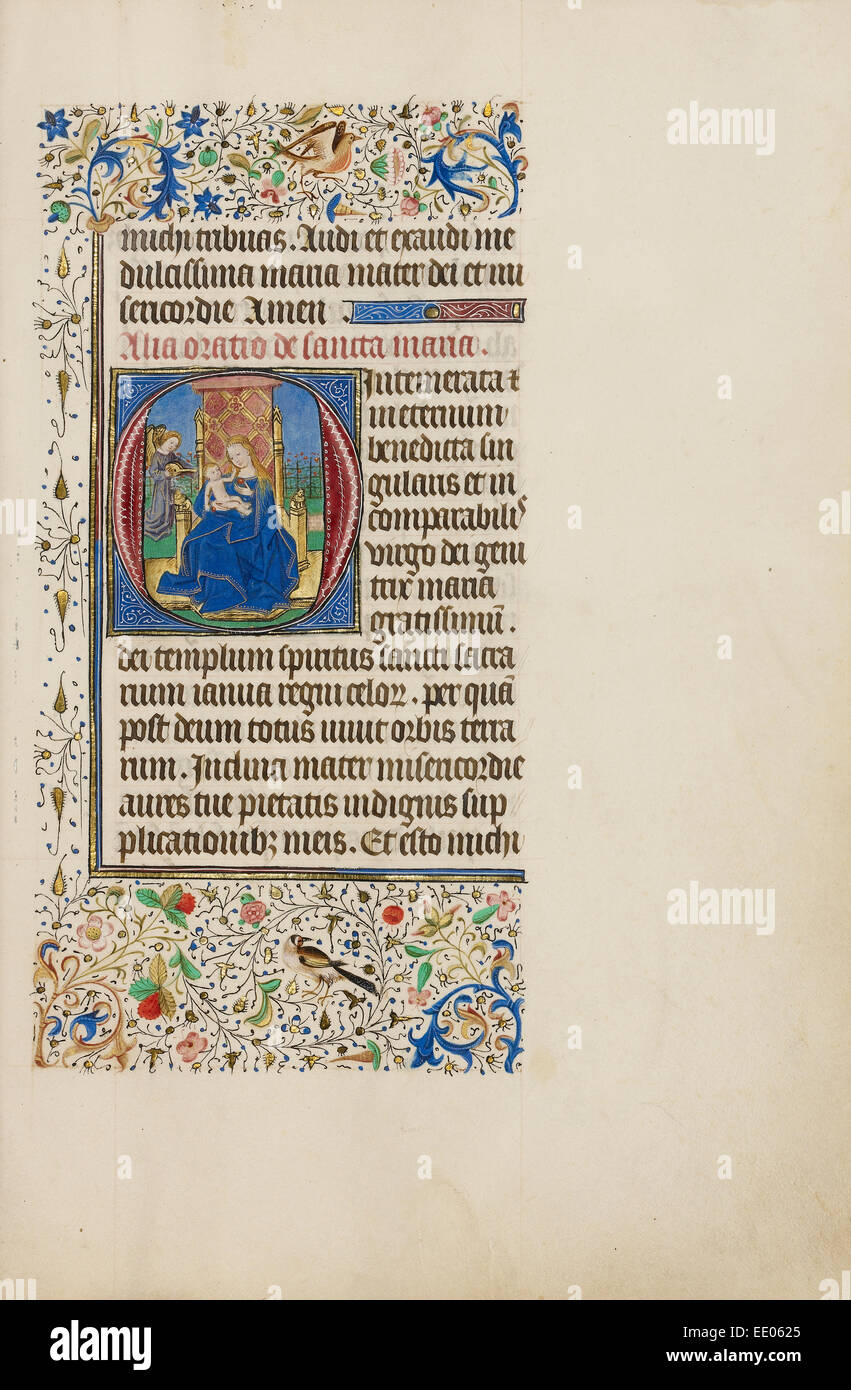 michi tribuas. Audi et exaudi me
dulcissima maria mater dei et mi
sericordie Amen.
Alia oratio de sancta maria.
O Intemerata et
in eternum
benedicta sin
gularis et in
comparabilis
virgo dei geni
trix maria
gratissimū.
dei templum spiritus sancti sacra
rium ianua regni celoꝝ. per quā
post deum totus uiuit orbis terra
rum. Inclina mater misericordie
aures tue pietatis indignis sup
plicationibꝫ meis. Et esto michi
alamy stock photo
alamy
a
EE0625
www.alamy.com